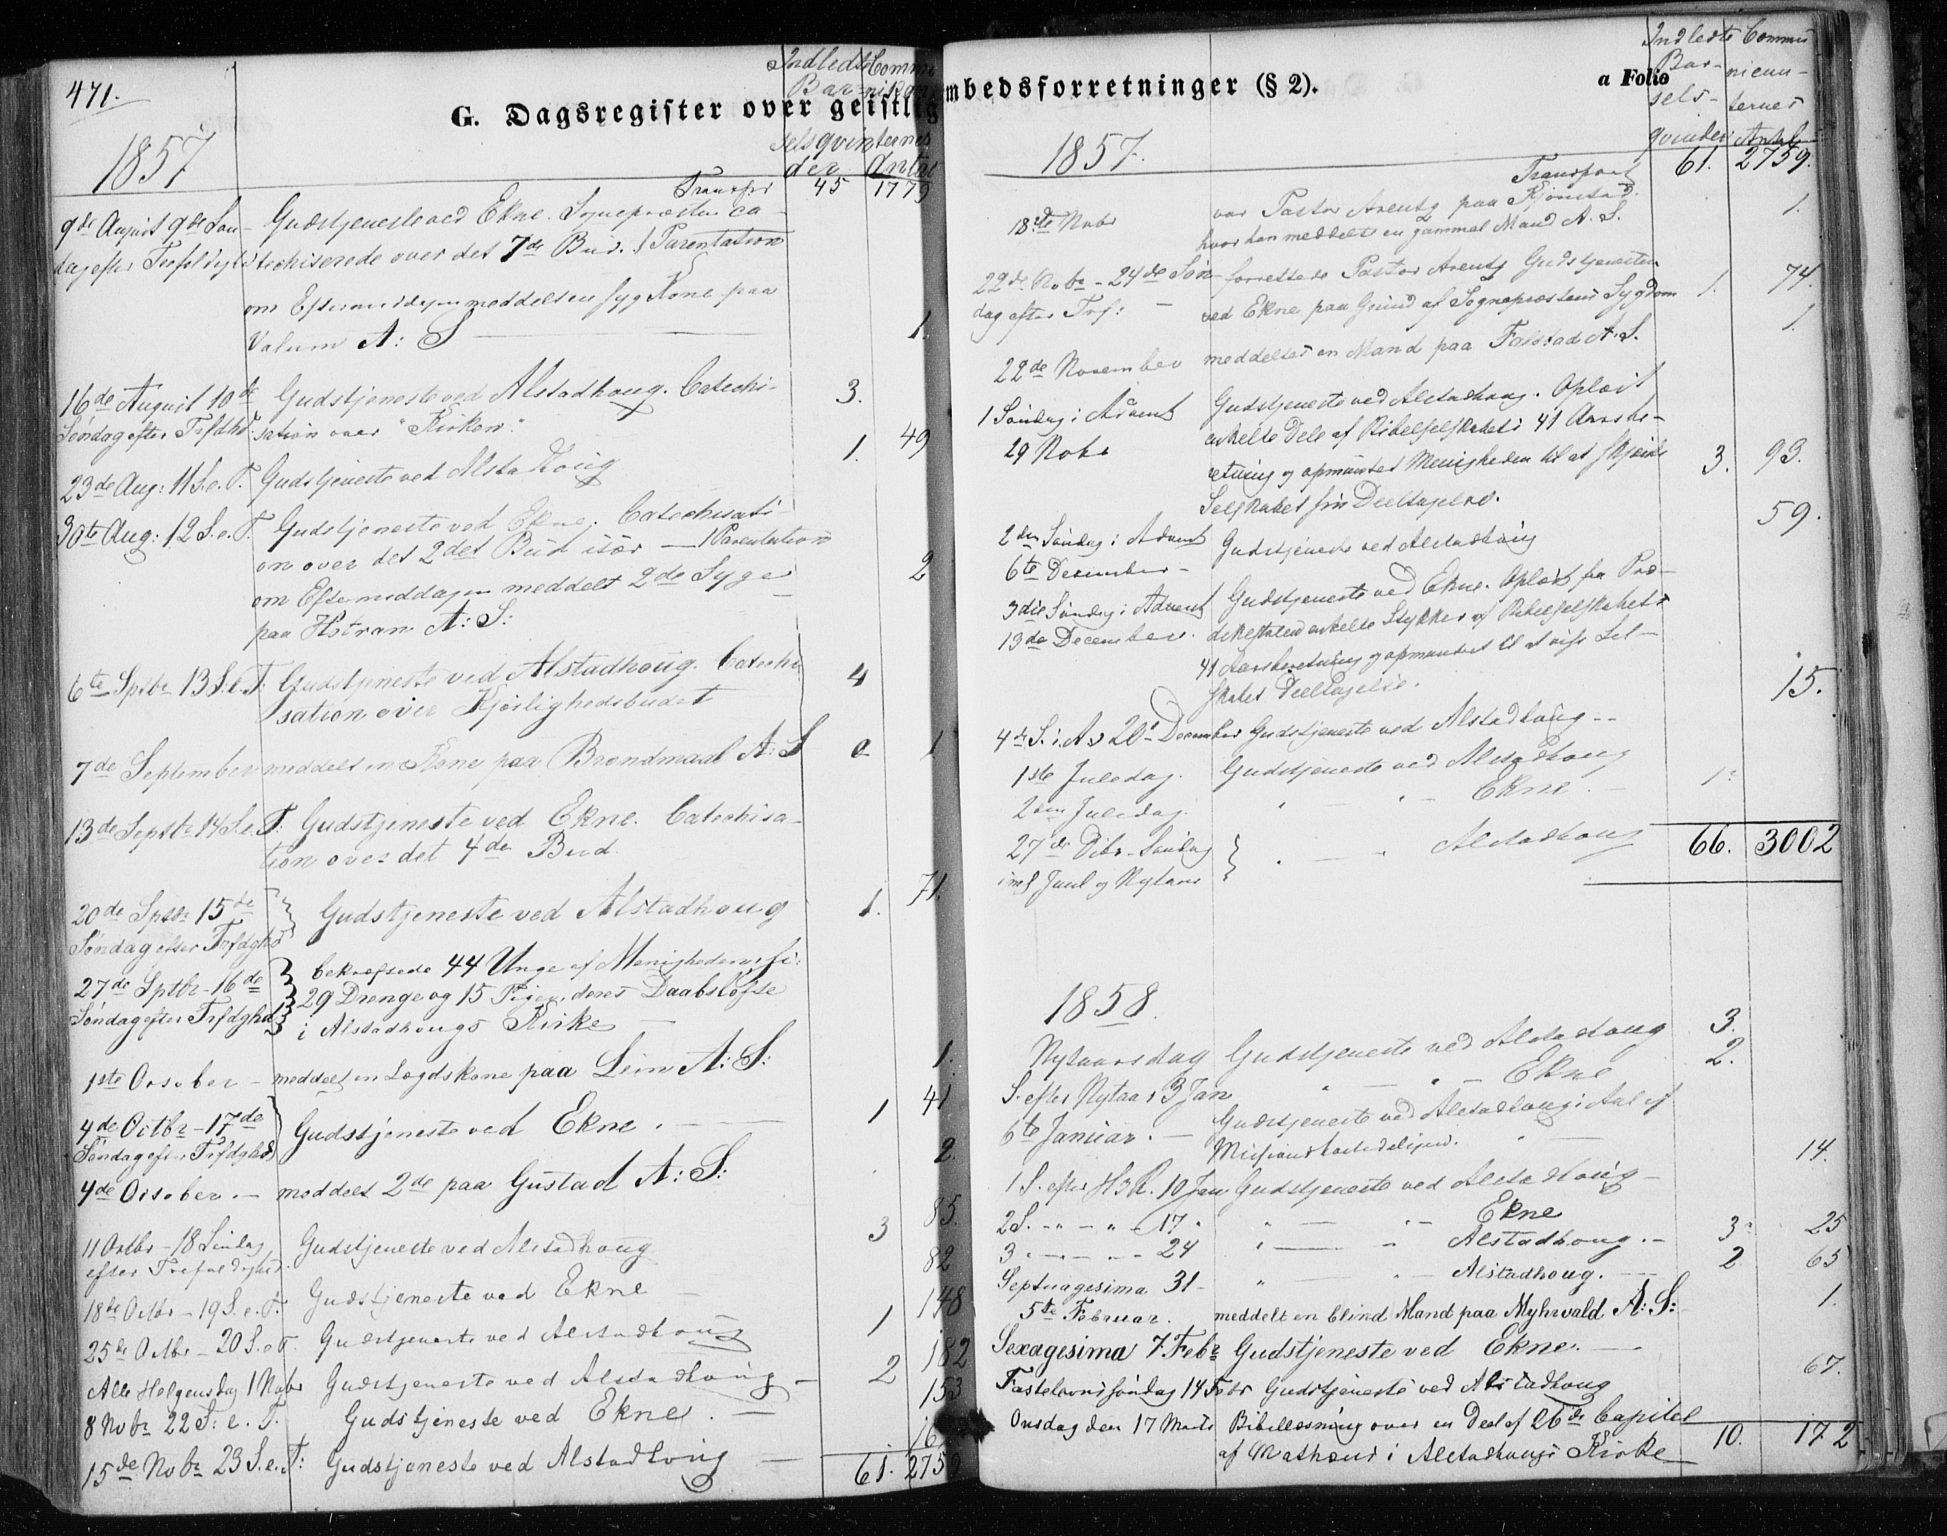 471.
G. Dagsregister over geistlig
1857
Indledte Commu
Bar- nikan
selsqvin ternes
der Antal
Transport 45 1779
9de August 9de Søn- Gudstjeneste ved Ekne. Sognepræsten ca-
dag efter Trefoldigh techiserede over det 7de Bud. 1 Parentation
om Eftermiddagen meddelt en syg Kone paa
Valum A: S 1.
16de August 10de Gudstjeneste ved Alstadhoug. Catechi- 3.
Søndag efter Trfdhd. sation over "Kirken". 49
23de Aug: 11 S. e. T. Gudstjeneste ved Alstadhoug 1.
30te Aug: 12 S. e. T. Gudstjeneste ved Ekne. Catechisati-
on over det 2det Bud især — 1 Parentation
om Eftermiddagen meddelt 2de Syge 2
paa Hstran A: S:
6te Sptbr 13 S. e. T: Gudstjeneste ved Alstadhoug. Catechi 4
sation over Kjærlighedsbudet
7de September meddelt en Kone paa Brandmael A: S 0 1
13de Septbr 14 S. e. T. Gudstjeneste ved Ekne. Catechisa-
tion over det 4de Bud.
71.
20de Sptbr 15de Gudstjeneste ved Alstadhoug 1.
Søndag efter Trfdghd
27de Sptbr - 16de bekræftede 44 Unge af Menigheden,
Søndag efter Trfdghd 29 Drenge og 15 Piger, deres Daabsløfte
i Alstadhougs Kirke —
1ste October - meddelt en Lægdskone paa Lein A: S: 1.
4de Octbr - 17de Gudstjeneste ved Ekne. 1 41
Søndag efter Trfdghd
4de October. — meddelt 2de paa Gustad A: S: 2.
11 Octbr - 18 Søndag Gudstjeneste ved Alstadhoug 3 85.
efter Trefoldighed.
18de Octbr - 19 S. e. T. Gudstjeneste ved Ekne 82
25de Octbr - 20 S. e. T. Gudstjeneste ved Alstadhoug 1 148
Alle Helgensdag 1 Nobr Gudstjeneste ved Alstadhoug — 2 182
8 Nobr 22 S: e. T. Gudstjeneste ved Ekne. — 153
15de Nobr 23 S. e. T: Gudstjeneste ved Alstadhoug — 16
61. 275
mbedsforretninger (§ 2).
a Folio
1857.
Indledte Commu
Bar- nicun-
sels- ternes
qvinder Antal
Transport 61. 2759.
18de Nobr var Pastor Arentz paa Kjønstad
hvor han meddelte en gammel Mand A. S. 1.
22de Nobr - 24de Søn- forrettede Pastor Arentz Gudstjenesten
dag efter Trf: — ved Ekne paa Grund af Sognepræstens Sygdom 1. 74.
22de November meddeltes en Mand paa Falstad A. S. 1.
1 Søndag i Advent Gudstjeneste ved Alstadhoug. Oplæst
29 Nobr enkelte Dele af Bibelselskabets 41 Aarsbe-
retning og opmuntret Menigheden til at skjænke 3. 93.
Selskabet sin Deeltagelse.
2den Søndag i Advent Gudstjeneste ved Alstadhoug 59.
6te December -
3die Søndag i Advent Gudstjeneste ved Ekne. Oplæst fra Præ-
13de December. dikestolen enkelte Stykker af Bibelselskabets
41 Aarsberetning og opmuntret til at vise Sel-
skabet Deeltagelse. 15.
4de S. i. A. 20s December Gudstjeneste ved Alstadhoug --
1ste Juledag. Gudstjeneste ved Alstadhoug
2den Juledag. " — " — Ekne. — 1.
27de Dcbr. Søndag " — " Alstadhoug 66. 3002
iml Juul og Nytaar
1858.
Nytaarsdag Gudstjeneste ved Alstadhoug 3.
S. efter Nytaar 3 Jan " — " — Ekne 2.
6te Januar. — Gudstjeneste ved Alstadhoug
1 S. efter H 3 K. 10 Jan Gudstjeneste ved Alstadhoug — 14.
2 S. - " - " - 17 " " — " — Ekne
3 " - " - " - 24 " — " Alstadhoug. — 3 25
Septuagesima 31 - " — " — Alstadhoug. — 2 65
5te Februar. meddelt en blind Mand paa Myhrvald A: S: 1.
Sexagesima 7. Febr Gudstjeneste ved Ekne. —
Fastelavnssøndag 14 Febr Gudstjeneste ved Alstadhoug 67.
Onsdag den 17 Marts Bibellæsning over en Deel af 26de Capitel
af Mathæus i Alstadhougs Kirke 10. 172